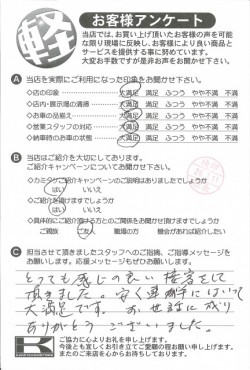 軽
お客様アンケート
当店では、お買い上げ頂いたお客様の声を可能
な限り現場に反映し、お客様により良い商品と
サービスを提供する事に努めています。
大変お手数ですが是非お声をお聞かせ下さい。
A 当店を実際にご利用になった印象をお聞かせ下さい。
◇店の印象 大満足 満足 ふつう やや不満 不満
◇店内・展示場の清掃 大満足 満足 ふつう やや不満 不満
◇お車の品揃え 大満足 満足 ふつう やや不満 不満
◇営業スタッフの対応 大満足 満足 ふつう やや不満 不満
◇納車時のお車の状態 大満足 満足 ふつう やや不満 不満
B 当店はご紹介を大切にしております。
ご紹介キャンペーンについてお聞かせ下さい。
ご紹介キャンペーンのご説明はありましたでしょうか
はい いいえ
◇ご紹介を頂けますでしょうか
はい いいえ
◇具体的にご紹介頂ける方とのご関係をお聞かせ頂けますでしょうか
ご親族 ご友人 職場の方 機会があれば紹介したい
C 担当させて頂きましたスタッフへのご指摘、ご指導メッセージを
お願いします。応援メッセージもぜひお願いします。
とっても感じの良い接客をして
頂きました。安く
大満足です。お世話に成り
ありがとうございました。
K
ご協力に心よりお礼を申し上げます。
今後とも宜しくお引き立てご愛顧の程お願い申し上げます。
またのご来店を心からお待ちしております。